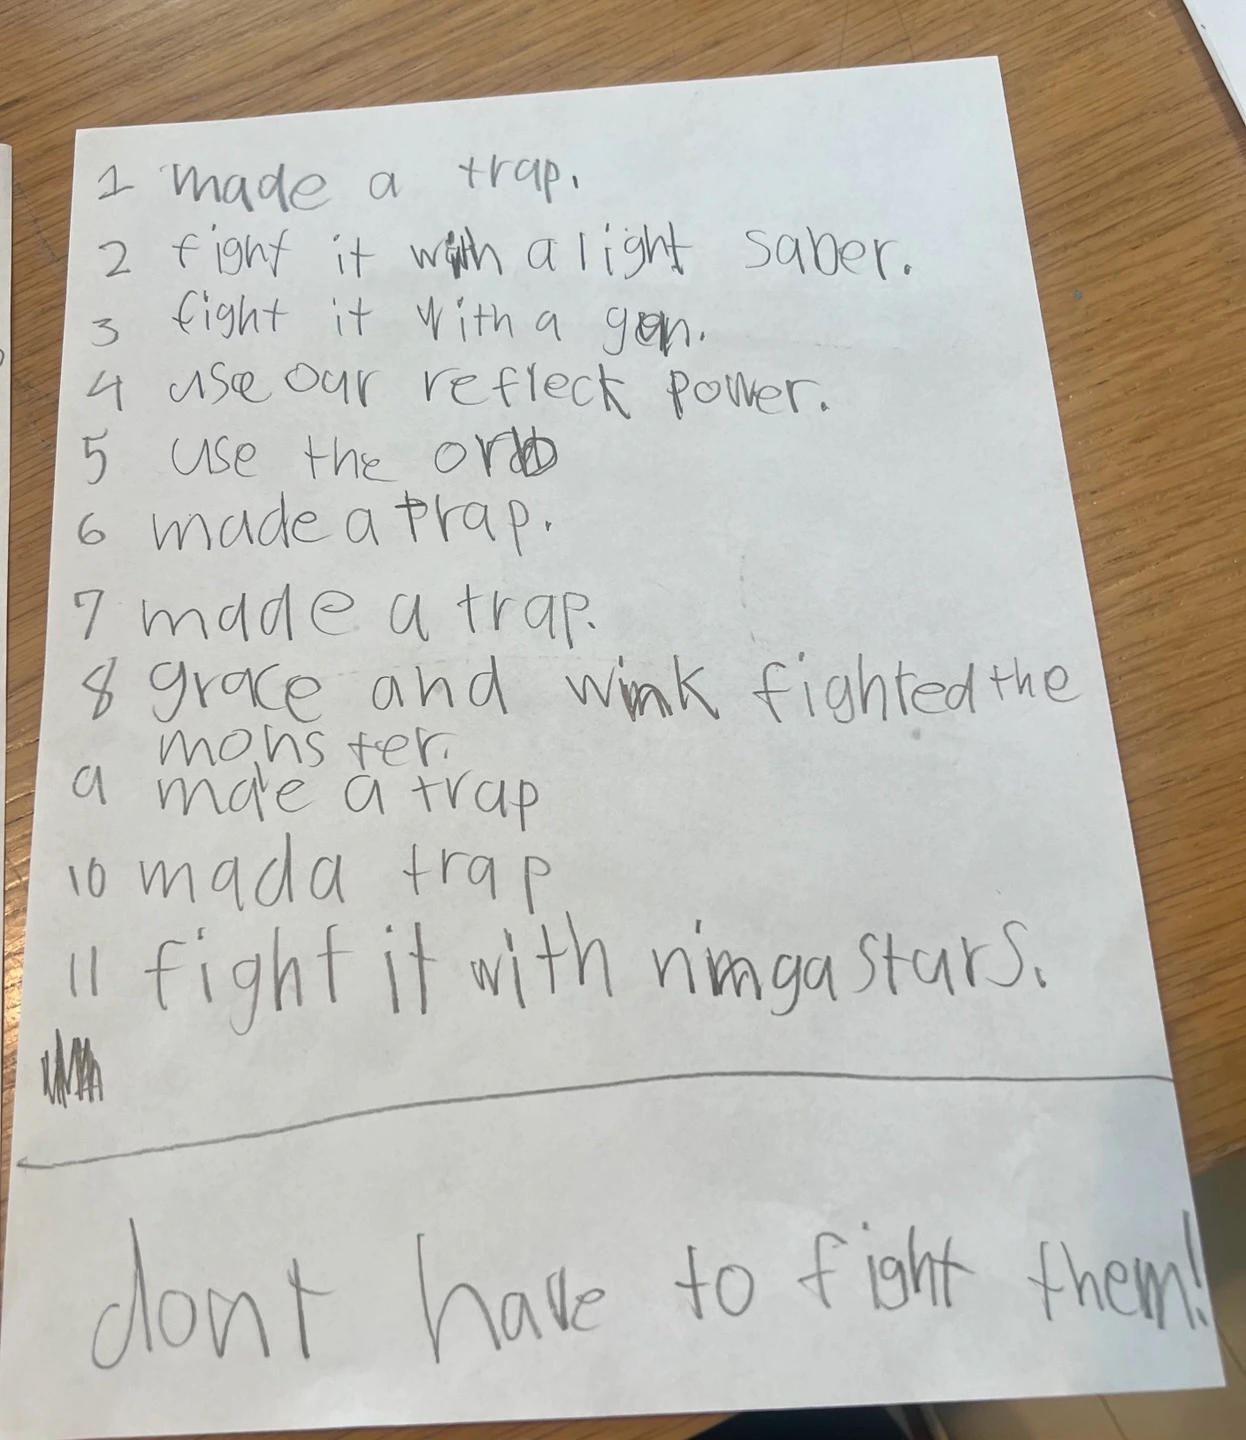 1 made a trap.
2 fight it with a light saber.
3 fight it with a gun.
4 use our refleck power.
5 use the orb
6 made a trap.
7 made a trap.
8 grace and wink fighted the
monster.
9 made a trap
10 mada trap
11 fight it with ninga stars.
dont have to fight them!